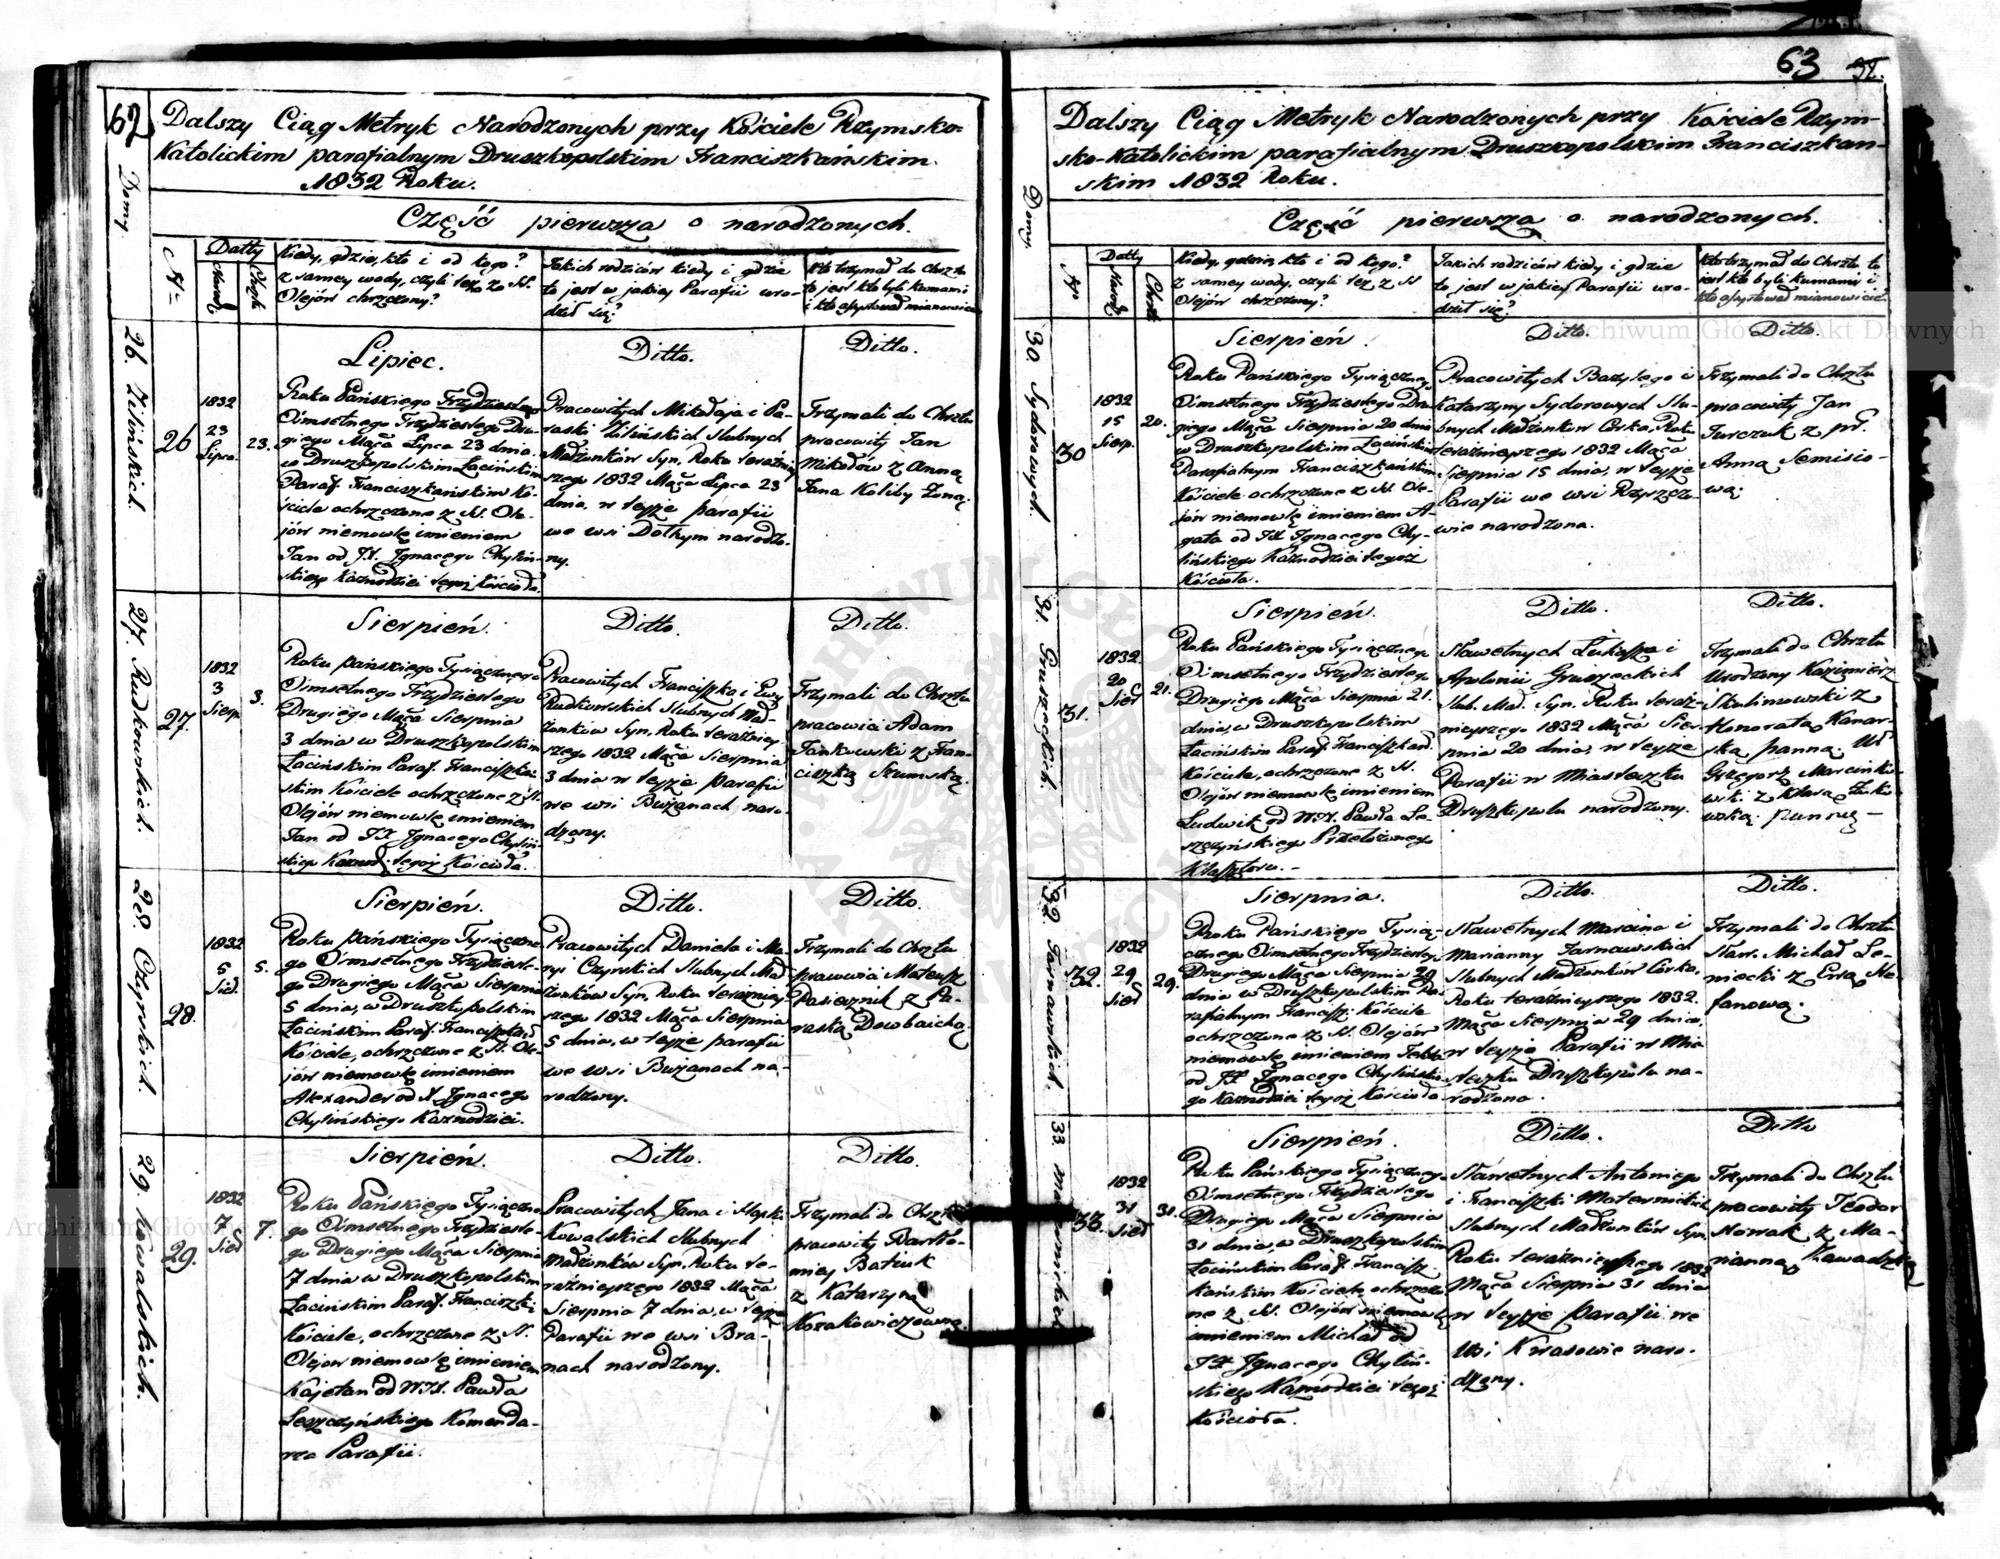 62
Dalszy Ciąg Metryk Narodzonych przy Kościele Rzymsko-
Katolickim parafialnym Druszkopolskim Franciszkańskim
1832 Roku.
Część pierwsza o narodzonych.
Domy
No
Datty
Narodz
Chrztu
Kiedy, gdzie, kto i od kogo?
z samey wody, czyli też z SS.
Olejów chrzczony?
Jakich rodziców kiedy i gdzie
to jest w jakiey Parafii uro-
dził się?
Kto trzymał do Chrztu
to jest kto byli kumami
i kto asystował mianowicie
26. Zilińskich.
26
1832
23
Lipca
23.
Lipiec.
Roku Pańskiego
Ośmsetnego Trzydziestego Dru-
giego Mąca Lipca 23 dnia
w Druszkopolskim Łacińskim
Paraf. Franciszkańskim Ko-
ściele ochrzczone z SS. Ole-
jów niemowlę imieniem
Jan od J.X. Ignacego Chyliń-
skiego Kaznodziei tegoż Kościoła.
Ditto.
Pracowitych Mikołaja i Pa-
raski Zilińskich slubnych
Małżonków Syn, Roku teraźniey
szego 1832 Mąca Lipca 23
dnia, w teyże parafii
we wsi Dołkym narodzo-
ny.
Ditto.
Trzymali do Chrztu
pracowity Jan
Mikodów z Anną
Jana Koliby Żoną.
27. Rudkowskich.
27.
1832
3
Sierp.
3.
Sierpień.
Roku pańskiego Tysiącznego
Ośmsetnego Trzydziestego
Drugiego Mąca Sierpnia
3 dnia w Druszkopolskim
Łacińskim Paraf. Franciszkań-
skim Kościele ochrzczone z SS.
Olejów niemowlę imieniem
Jan od J.X. Ignacego Chyliń-
skiego Kaznod. tegoż Kościoła.
Ditto.
Pracowitych Franciszka i Ewy
Rudkowskich slubnych Mał-
żonków Syn, Roku teraźniey
szego 1832 Mąca Sierpnia
3 dnia w teyże parafii
we wsi Bużanach naro-
dzony.
Ditto.
Trzymali do Chrztu
pracowia Adam
Jankowski z Fran-
ciszką Szumską.
28. Czyrskich.
28.
1832
5
Sier.
5.
Sierpień.
Roku pańskiego Tysiączne
go Ośmsetnego Trzydzieste-
go Drugiego Mąca Sierpnia
5 dnia, w Druszkopolskim
Łacińskim Paraf. Franciszkań
Kościele, ochrzczone z SS. Ole-
jów niemowlę imieniem
Alexander od X Ignacego
Chylińskiego Kaznodziei.
Ditto.
Pracowitych Daniela i Ma-
ryi Czyrskich slubnych Mał
żonków Syn, Roku teraźniey
szego 1832 Mąca Sierpnia
5 dnia, w teyże parafii
we wsi Bużanach na-
rodzony.
Ditto.
Trzymali do Chrztu
pracowia Mateusz
Pasiecznik z Pa-
raską Dowbaichą.
29. Kowalskich.
29.
1832
7
Sier
7.
Sierpień.
Roku Pańskiego Tysiączne
go Ośmsetnego Trzydzieste-
go Drugiego Mąca Sierpnia
7 dnia w Druszkopolskim
Łacińskim Paraf. Franciszk:
Kościele, ochrzczone z SS.
Olejów niemowlę imieniem
Kajetan od W.JX. Pawła
Leszczyńskiego Komenda-
rza Parafii.
Ditto.
Pracowitych Jana i
Kowalskich slubnych
małżonków Syn, Roku te-
raźnieyszego 1832 Mąca
Sierpnia 7 dnia, w teyże
Parafii we wsi Bra-
nach narodzony.
Ditto.
Trzymali do Chrztu
pracowity Bartło-
miey Batiuk
z Katarzyną
Kozakowiczowną
63
Dalszy Ciąg Metryk Narodzonych przy Kościele Rzym-
sko-Katolickim parafialnym Druszkopolskim Franciszkań-
skim 1832 Roku.
Część pierwsza o narodzonych.
Domy
No
Datty
Narodz
Chrztu
Kiedy, gdzie, kto i od kogo?
z samey wody, czyli też z SS
Olejów chrzczony?
Jakich rodziców kiedy i gdzie
to jest w jakiey Parafii uro-
dził się?
Kto trzymał do Chrztu to
jest kto byli kumami i
kto asystował mianowicie.
30 Sydorowych.
30
1832
15
Sierp.
20.
Sierpień.
Roku Pańskiego Tysiącznego
Ośmsetnego Trzydziestego Dru
giego Mąca Sierpnia 20 dnia
w Druszkopolskim Łacińskim
Parafialnym Franciszkańskim
Kościele ochrzczone z SS. Ole-
jów niemowlę imieniem A-
gata od JX Ignacego Chy-
lińskiego Kaznodziei tegoż
Kościoła.
Ditto.
Pracowitych Bazylego i
Katarzyny Sydorowych slu-
bnych Małżonków Córka, Roku
teraźnieyszego 1832 Mąca
Sierpnia 15 dnia, w teyże
Parafii we wsi Rzyszcze-
wie narodzona.
Ditto.
Trzymali do Chrztu
pracowity Jan
Jurczuk z pr.
Anna Semisio-
wą.
31. Gruszeckich.
31.
1832.
20
Sier
21.
Sierpień.
Roku Pańskiego Tysiącznego
Ośmsetnego Trzydziestego
Drugiego Mąca Sierpnia 21.
dnia, w Druszkopolskim
Łacińskim Paraf. Franciszkań.
Kościele, ochrzczone z SS.
Olejów niemowlę imieniem
Ludwik od W.JX. Pawła Le-
szczyńskiego Przełożonego
Klasztoru.
Ditto.
Sławetnych Łukasza i
Apolonii Gruszeckich
slub. Mał. Syn, Roku teraź-
nieyszego 1832 Mąca Sier-
pnia 20 dnia, w teyże
Parafii w Miasteczku
Druszkopolu narodzony.
Ditto.
Trzymali do Chrztu
Urodzony Kazimierz
Skulimowski z
Honoratą Kanar-
ską panną.
Grzegorz Marcinko-
wski z Klarą
panną
32. Tarnawskich.
32.
1832
29
Sier
29.
Sierpnia.
Roku Pańskiego Tysią-
cznego Ośmsetnego Trzydziestego
Drugiego Mąca Sierpnia 29
dnia w Druszkopolskim Pa-
rafialnym Francisz: Kościele
ochrzczone z SS. Olejów
niemowlę imieniem Tekla
od JX Ignacego Chylińskie-
go Kaznodziei tegoż Kościoła
Ditto.
Sławetnych Marcina i
Marianny Tarnawskich
slubnych Małżonków Córka,
Roku teraźnieyszego 1832.
Mąca Sierpnia 29 dnia,
w teyże Parafii w Mia
steczku Druszkopolu na-
rodzona.
Ditto.
Trzymali do Chrztu
Sław. Michał Le-
niecki z Ewą Ste-
fanową.
33.
33.
1832
31
Sier
31.
Sierpień.
Roku Pańskiego Tysiącznego
Ośmsetnego Trzydziestego
Drugiego Mąca Sierpnia
31 dnia, w Druszkopolskim
Łacińskim Paraf. Francisz-
kańskim Kościele ochrzczo
ne z SS. Olejów niemowlę
imieniem Michał od
JX Ignacego Chyliń-
skiego Kaznodziei tegoż
Kościoła.
Ditto.
Sławetnych Antoniego
i Franciszki Maternickich
slubnych Małżonków Syn,
Roku teraźnieyszego 1832
Mąca Sierpnia 31 dnia
w teyże parafii we
Wsi Kwasowie naro-
dzony.
Ditto
Trzymali do Chrztu
pracowity Teodor
Nowak z Ma-
rianną Zawadzką
Archiwum Główne Akt Dawnych